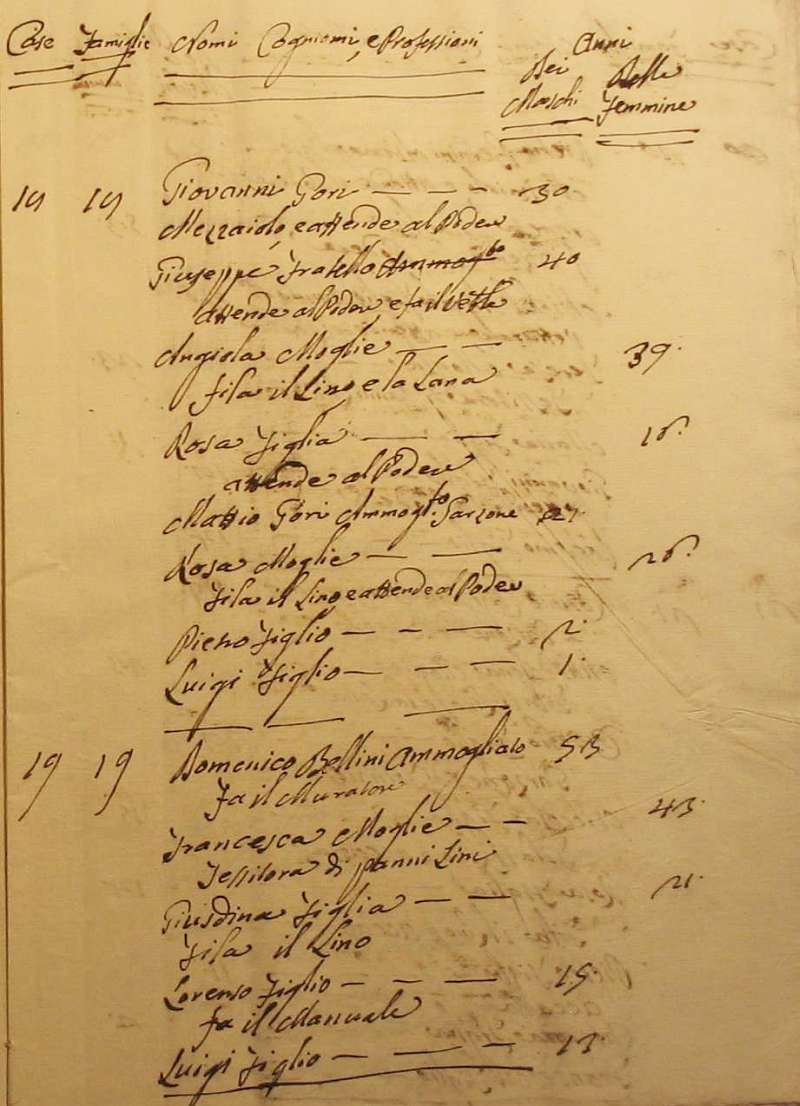 Case Famiglie Nomi Cognomi, e Professioni Anni
Dei Maschi Delle Femmine
19 19 Giovanni Gori — — — 30
Mezzaiolo, e attende al Podere
Giuseppe Fratello Ammog.to 40
attende al Podere, e fa il
Angiola Moglie — — 39.
fila il Lino, e la Lana
Rosa Figlia — — 16.
attende al Podere
Mattio Gori Ammogl.to Garzone 27.
Rosa Moglie — — 26.
Fila il Lino, e attende al Podere
Pietro Figlio — — — 2.
Luigi Figlio — — — 1.
19 19 Domenico Bellini Ammogliato 53
Fa il Muratore
Francesca Moglie — — 43.
Tessitora di panni Lini
Giusdina Figlia — — 21.
Fila il Lino
Lorenso Figlio — — — 15.
fa il Manuale
Luigi Figlio — — — 13.